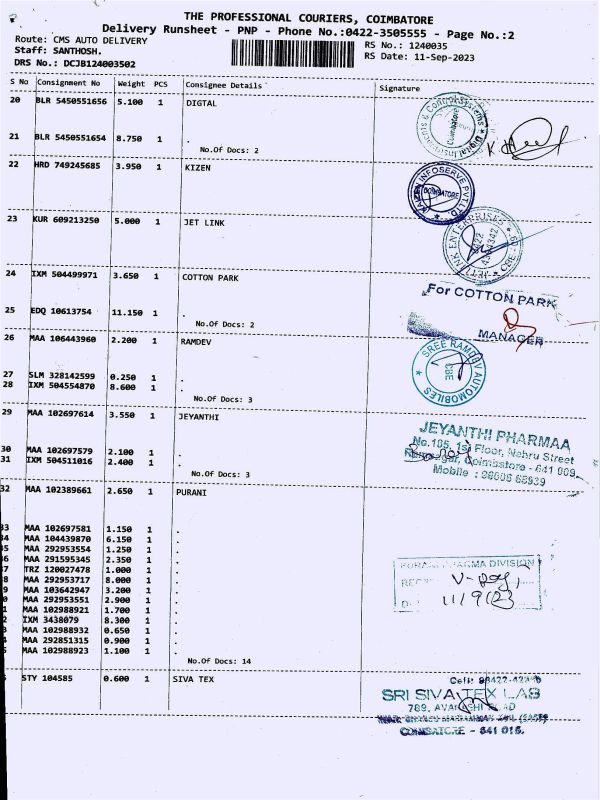 THE PROFESSIONAL COURIERS, COIMBATORE
Delivery Runsheet - PNP - Phone No.:0422-3505555 - Page No.:2
Route: CMS AUTO DELIVERY
RS No.: 1240035
Staff: SANTHOSH.
RS Date: 11-Sep-2023
DRS No.: DCJB124003502
S No Consignment No Weight PCS Consignee Details Signature
20 BLR 5450551656 5.100 1 DIGTAL
21 BLR 5450551654 8.750 1 .
No.Of Docs: 2
22 HRD 749245685 3.950 1 KIZEN
KAIZEN INFOSERVE PVT LTD
COIMBATORE
23 KUR 609213250 5.000 1 JET LINK
24 IXM 504499971 3.650 1 COTTON PARK
For COTTON PARK
25 EDQ 10613754 11.150 1 .
No.Of Docs: 2
MANAGER
26 MAA 106443960 2.200 1 RAMDEV
SREE RAMDEV AUTOMOBILES
CBE
27 SLM 328142599 0.250 1 .
28 IXM 504554870 8.600 1 .
No.Of Docs: 3
29 MAA 102697614 3.550 1 JEYANTHI
JEYANTHI PHARMAA
No.105, 1st Floor, Nehru Street
30 MAA 102697579 2.100 1 .
31 IXM 504511016 2.400 1 .
Coimbatore - 641 009.
No.Of Docs: 3
32 MAA 102389661 2.650 1 PURANI
33 MAA 102697581 1.150 1 .
34 MAA 104439870 6.150 1 .
35 MAA 292953554 1.250 1 .
36 MAA 291595345 2.350 1 .
7 TRZ 120027478 1.000 1 .
8 MAA 292953717 8.000 1 .
9 MAA 103642947 3.200 1 .
0 MAA 292953551 2.900 1 .
1 MAA 102988921 1.700 1 .
2 IXM 3438079 8.300 1 .
3 MAA 102988932 0.650 1 .
4 MAA 292851315 0.900 1 .
5 MAA 102988923 1.100 1 .
No.Of Docs: 14
DIVISION
11/9/23
STY 104585 0.600 1 SIVA TEX
SRI SIVA TEX LAB
COIMBATORE - 641 015.